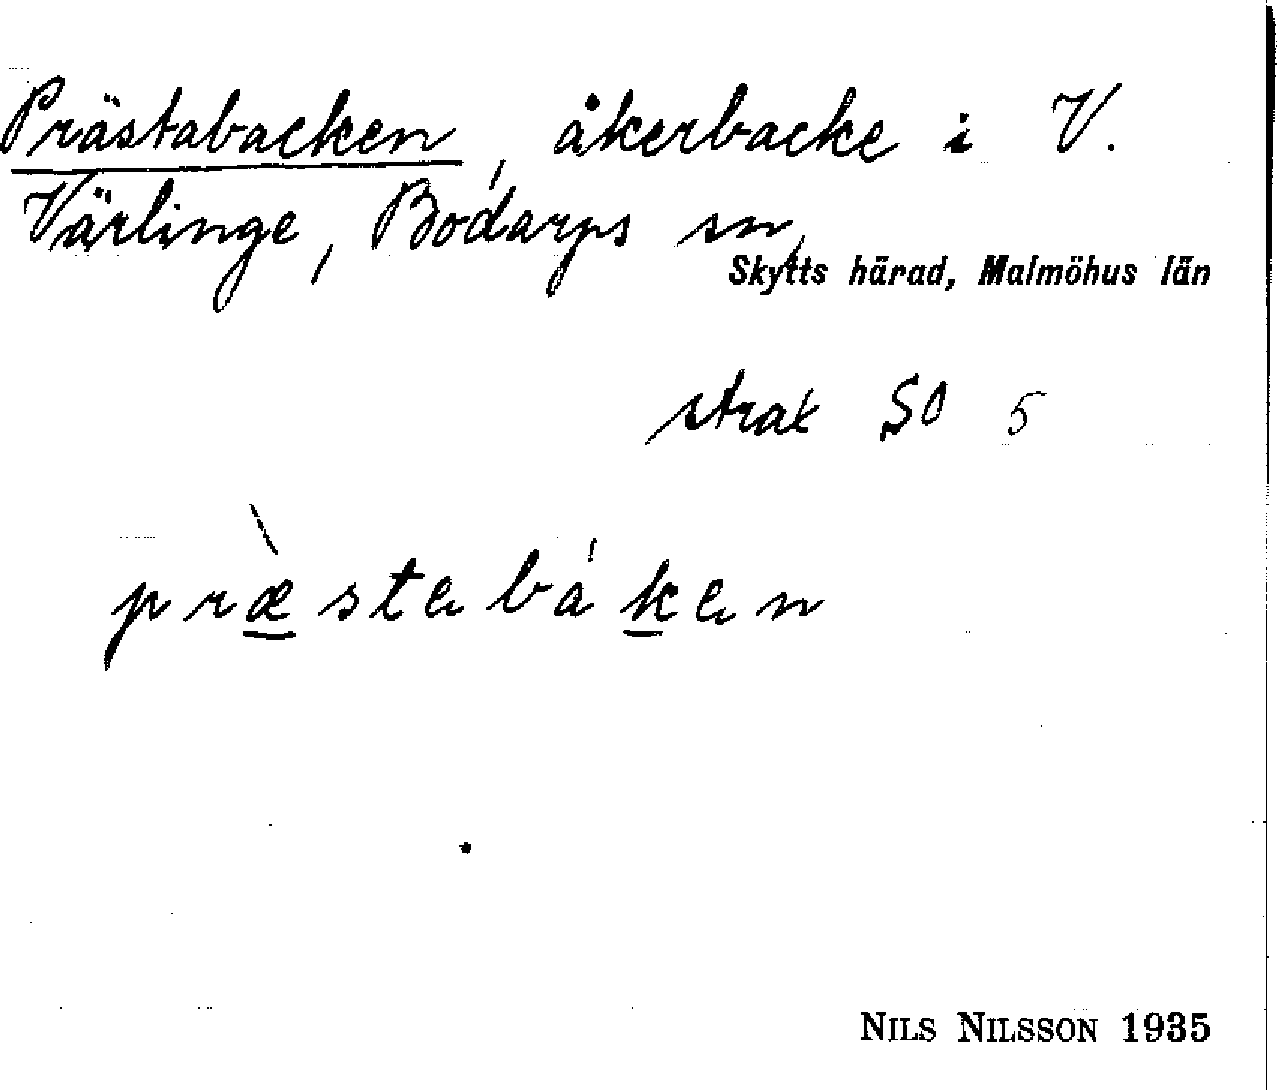 Prästabacken, åkerbacke i V.
Värlinge, Bodarps sn,
Skytts härad, Malmöhus län
strax SO 5
præ̀stebáken
NILS NILSSON 1935